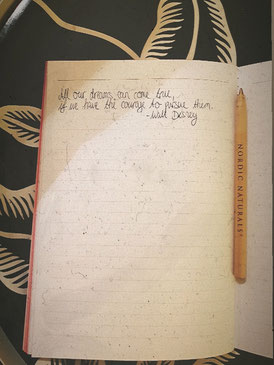 All our dreams can come true,
if we have the courage to pursue them.
-Walt Disney
NORDIC NATURALS®